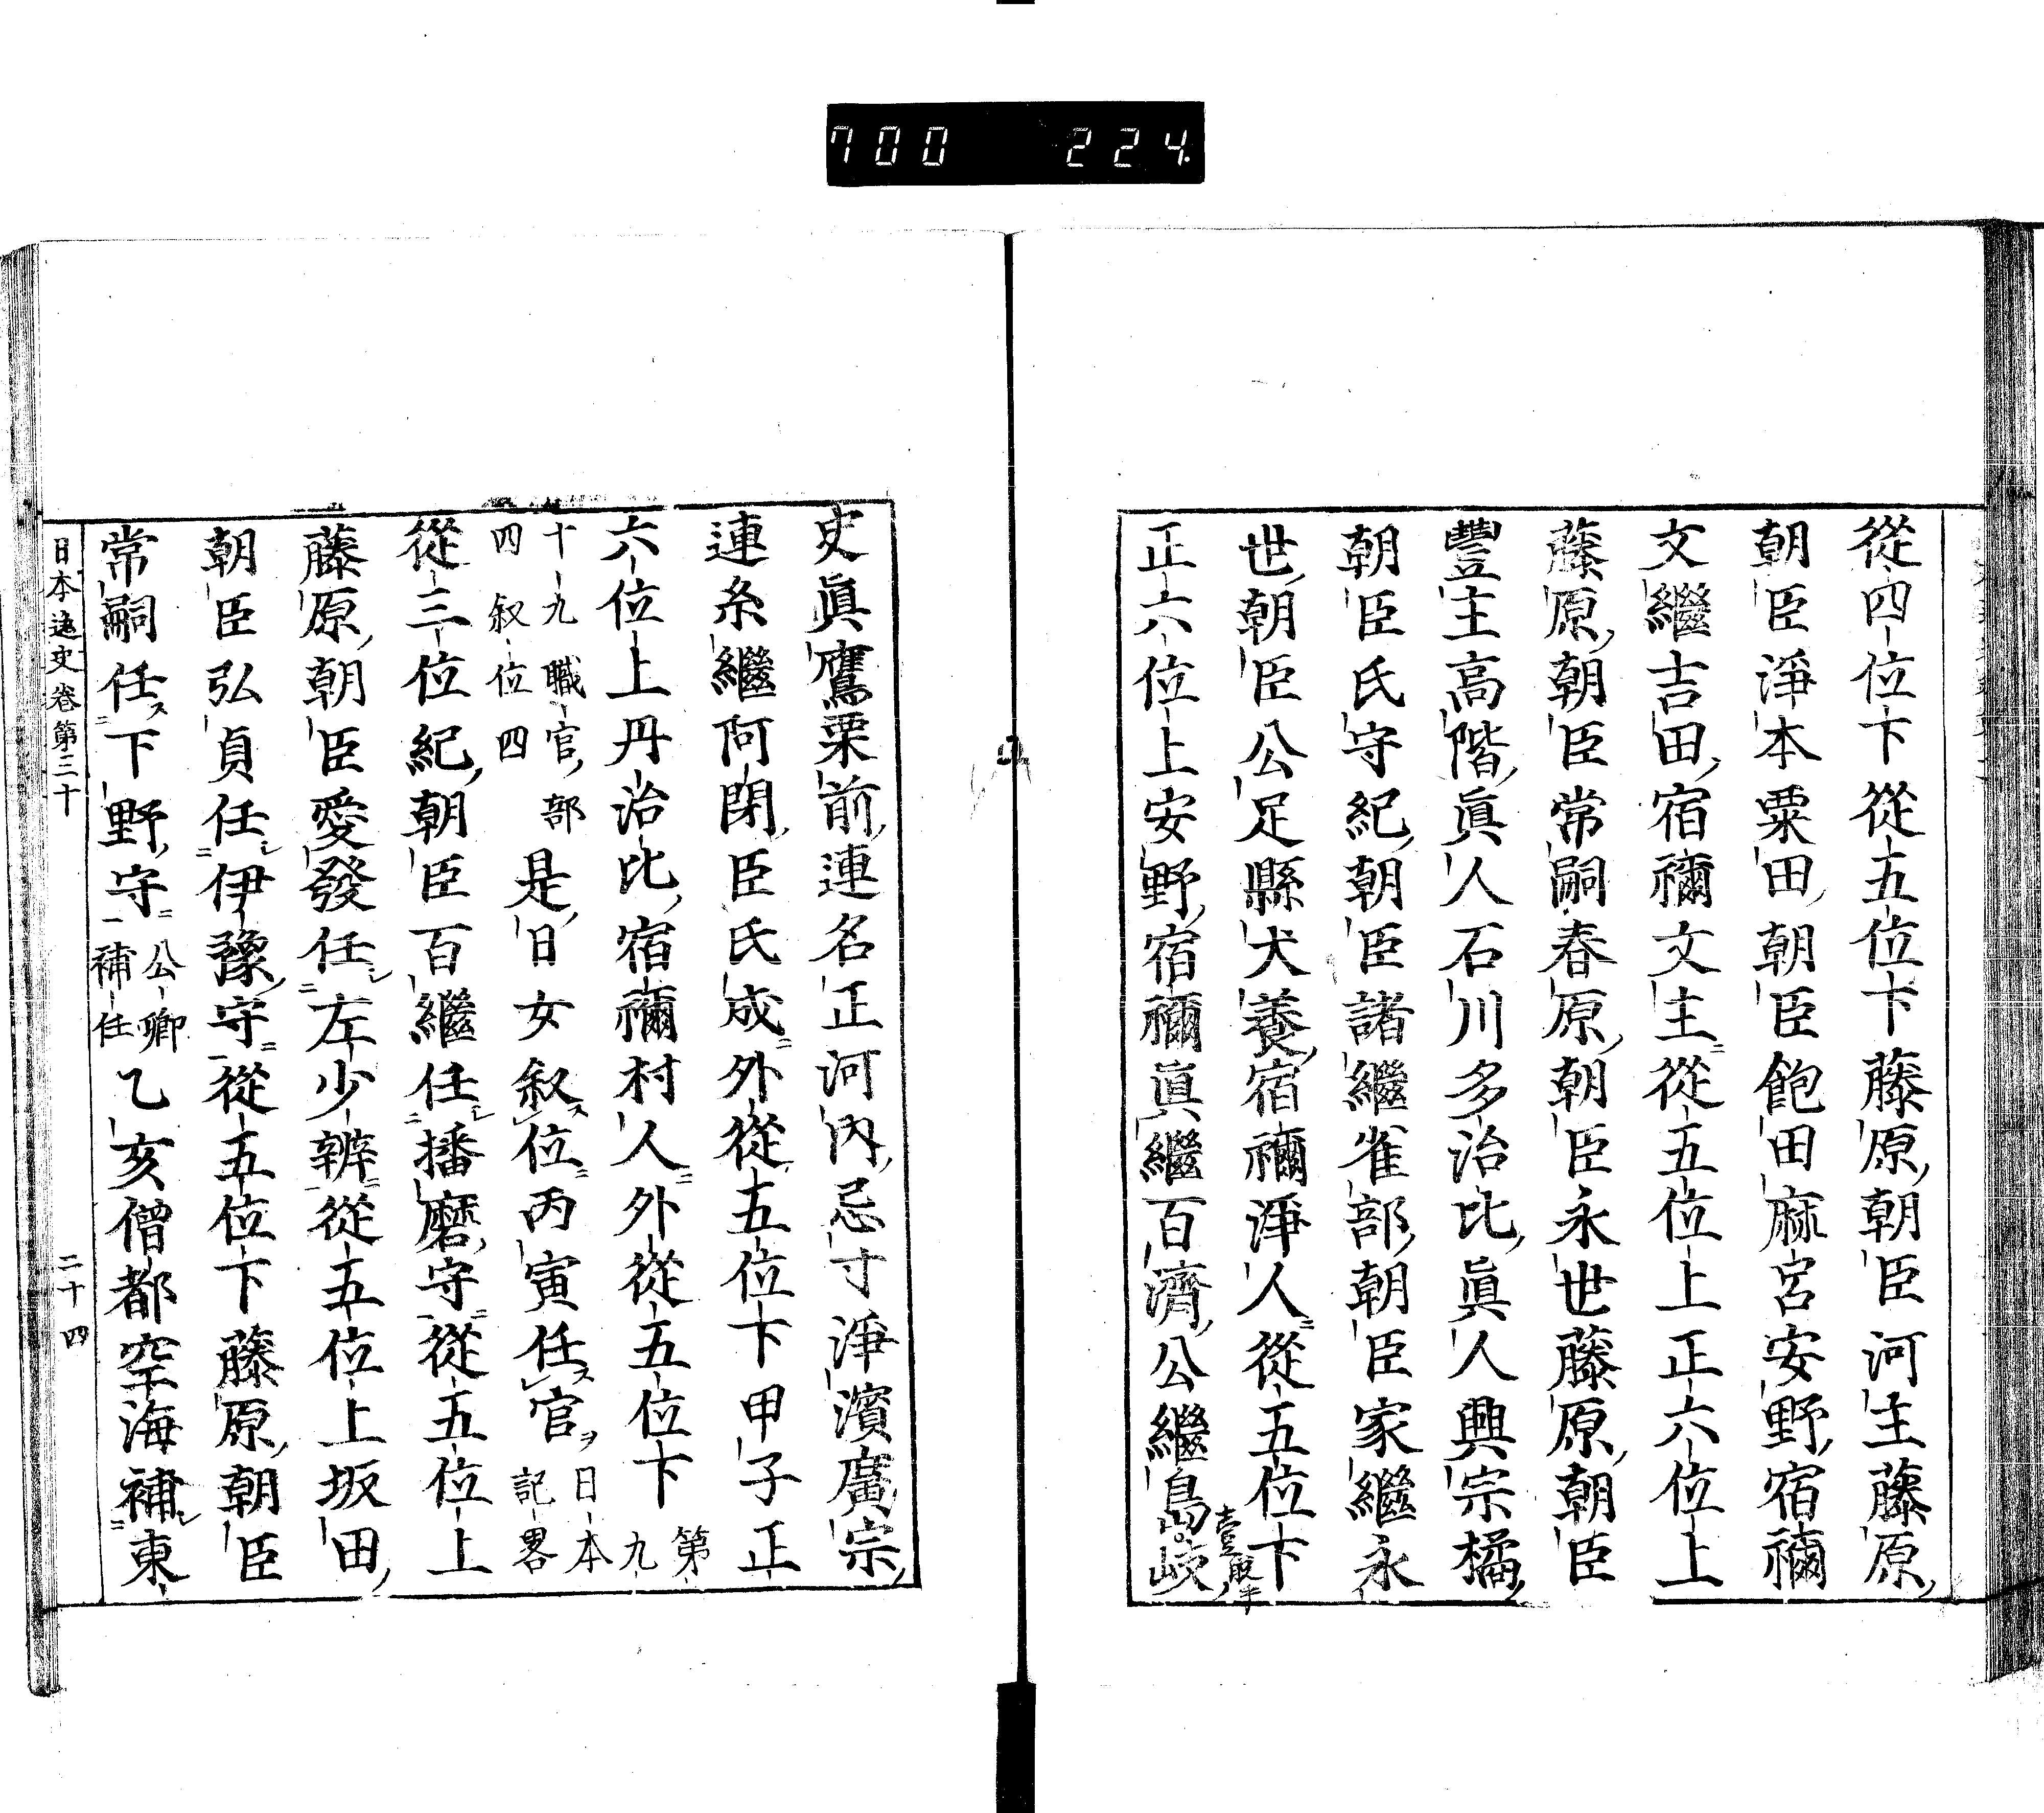 700 224
從四位下從五位下藤原朝臣河主藤原
朝臣淨本粟田朝臣飽田麻呂安野宿禰
文繼吉田宿禰文主從五位上正六位上
藤原朝臣常嗣春原朝臣永世藤原朝臣
豐主高階眞人石川多治比眞人興宗橘
朝臣氏守紀朝臣諸繼雀部朝臣家繼永
世朝臣公足縣犬養宿禰淨人從五位下
正六位上安野宿禰眞繼百濟公繼嶋
史眞鷹栗前連名正河內忌寸淨濱廣宗
連糸繼阿閉臣氏成外從五位下甲子正
六位上丹治比宿禰村人外從五位下第九
十九職官部四叙位四是日女叙位丙寅任官日本記畧
從三位紀朝臣百繼任播磨守從五位上
藤原朝臣愛發任左少辨從五位上坂田
朝臣弘貞任伊豫守從五位下藤原朝臣
常嗣任下野守公卿補任乙亥僧都空海補東
日本逸史卷第三十 二十四